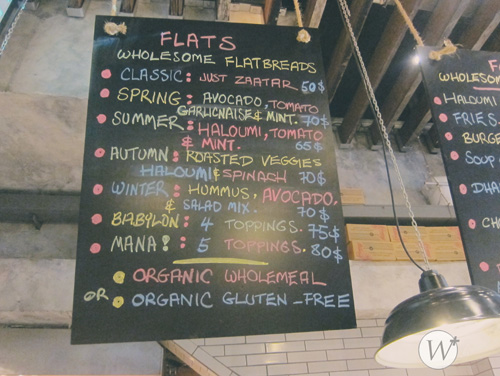 FLATS
WHOLESOME FLATBREADS
CLASSIC: JUST ZAATAR 50$
SPRING: AVOCADO, TOMATO
GARLICNAISE & MINT. 70$
SUMMER: HALOUMI, TOMATO
& MINT. 65$
AUTUMN: ROASTED VEGGIES
HALOUMI & SPINACH 70$
WINTER: HUMMUS, AVOCADO,
& SALAD MIX. 70$
BABYLON: 4 TOPPINGS. 75$
MANA!: 5 TOPPINGS. 80$
ORGANIC WHOLEMEAL
OR ORGANIC GLUTEN-FREE
HALOUMI
FRIES
SOUP
W